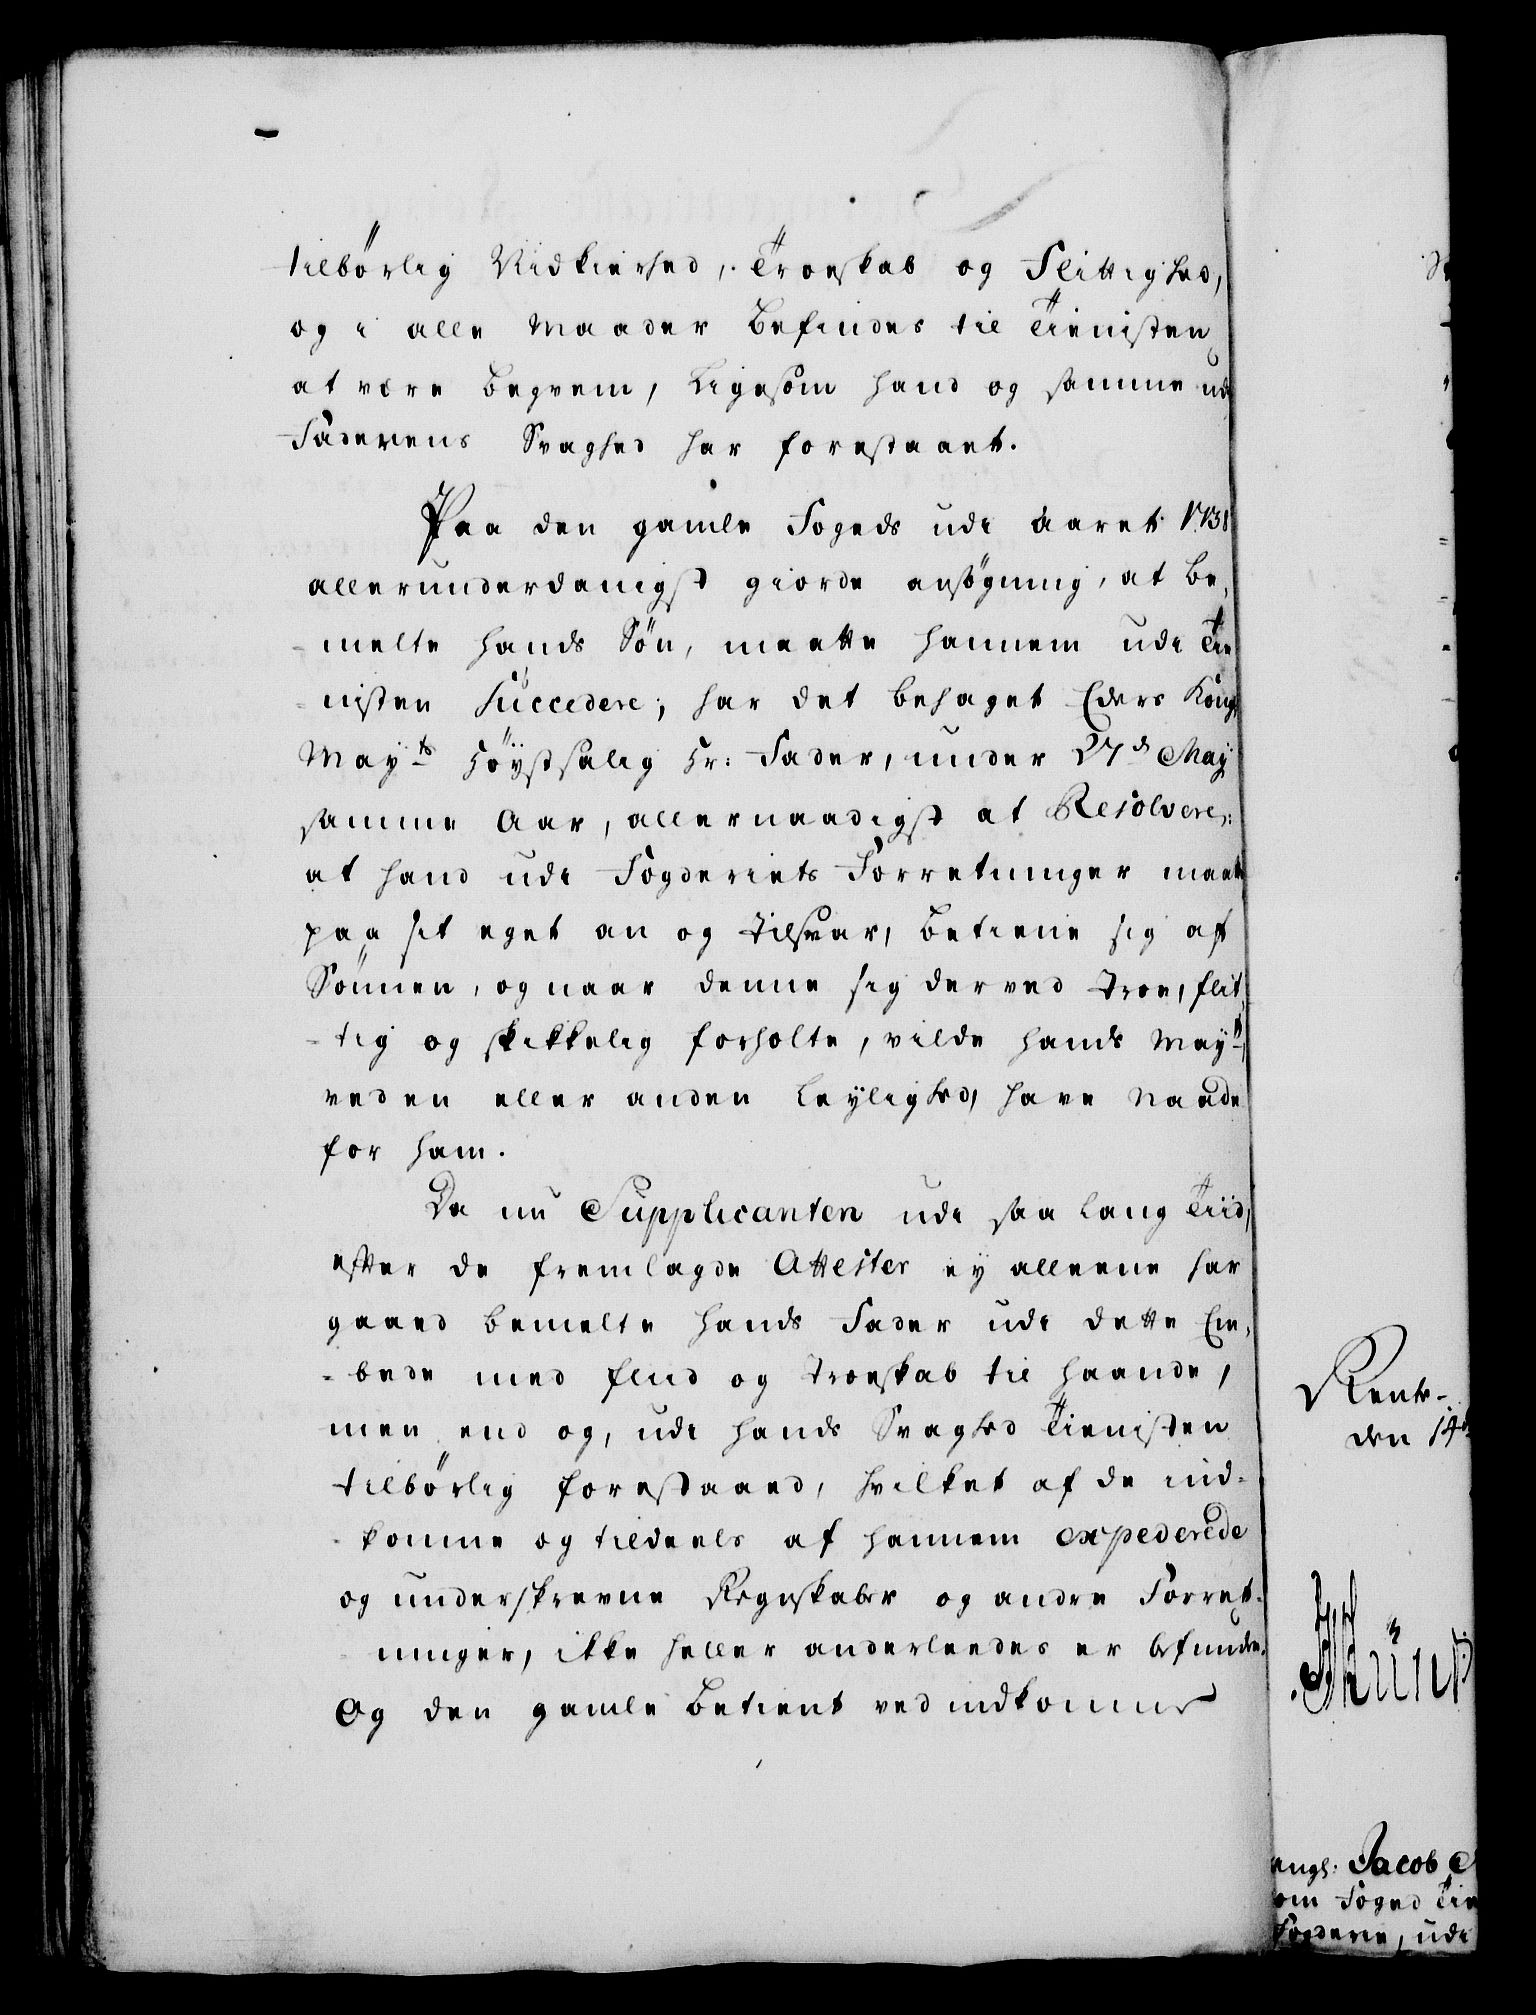 tilbörlig Vidkierhed, Troeskab og Flittighed,
og i alle Maader befindes til Tienisten
at være beqvem, ligesom hand og samme udi
Faderens Svaghed har forestaaet.
Paa den gamle Fogeds udi Aaret 1738
allerunderdanigst giorde ansögning, at be,
melte hands Sön, maatte hannem udi Tie
nisten Succedere; har det behaget Eders Kong
Mayts Höystsalig Hr: Fader, under 27d May
samme Aar, allernaadigst at Resolvere:
at hand udi Fogderiets Forretninger maatte
paa sit eget an og tilsvar, betiene sig af
Sönnen, og naar denne sig derved troe, flit,
-tig og skikkelig forholte, vilde hands Mayt,
ved en eller anden Leylighed, have Naade
for ham.
Da nu Supplicanten udi saa lang Tiid,
efter de fremlagde Attester ey alleene har
gaaed bemelte hands Fader udi dette Em,
-bede med fliid og troeskab til haande,
men end og, udi hands Svaghed Tienisten
tilbörlig forestaaed, hvilket af de ind-
-komne og tildeels af hannem expederede
og underskrevne Regnskaber og andre Forret-
ninger, ikke heller anderleedes er befunden.
Og den gamle betient ved indkomne
Rente-
den 14d
engl: Jacob
om Foged Tie
Fogderie, udi